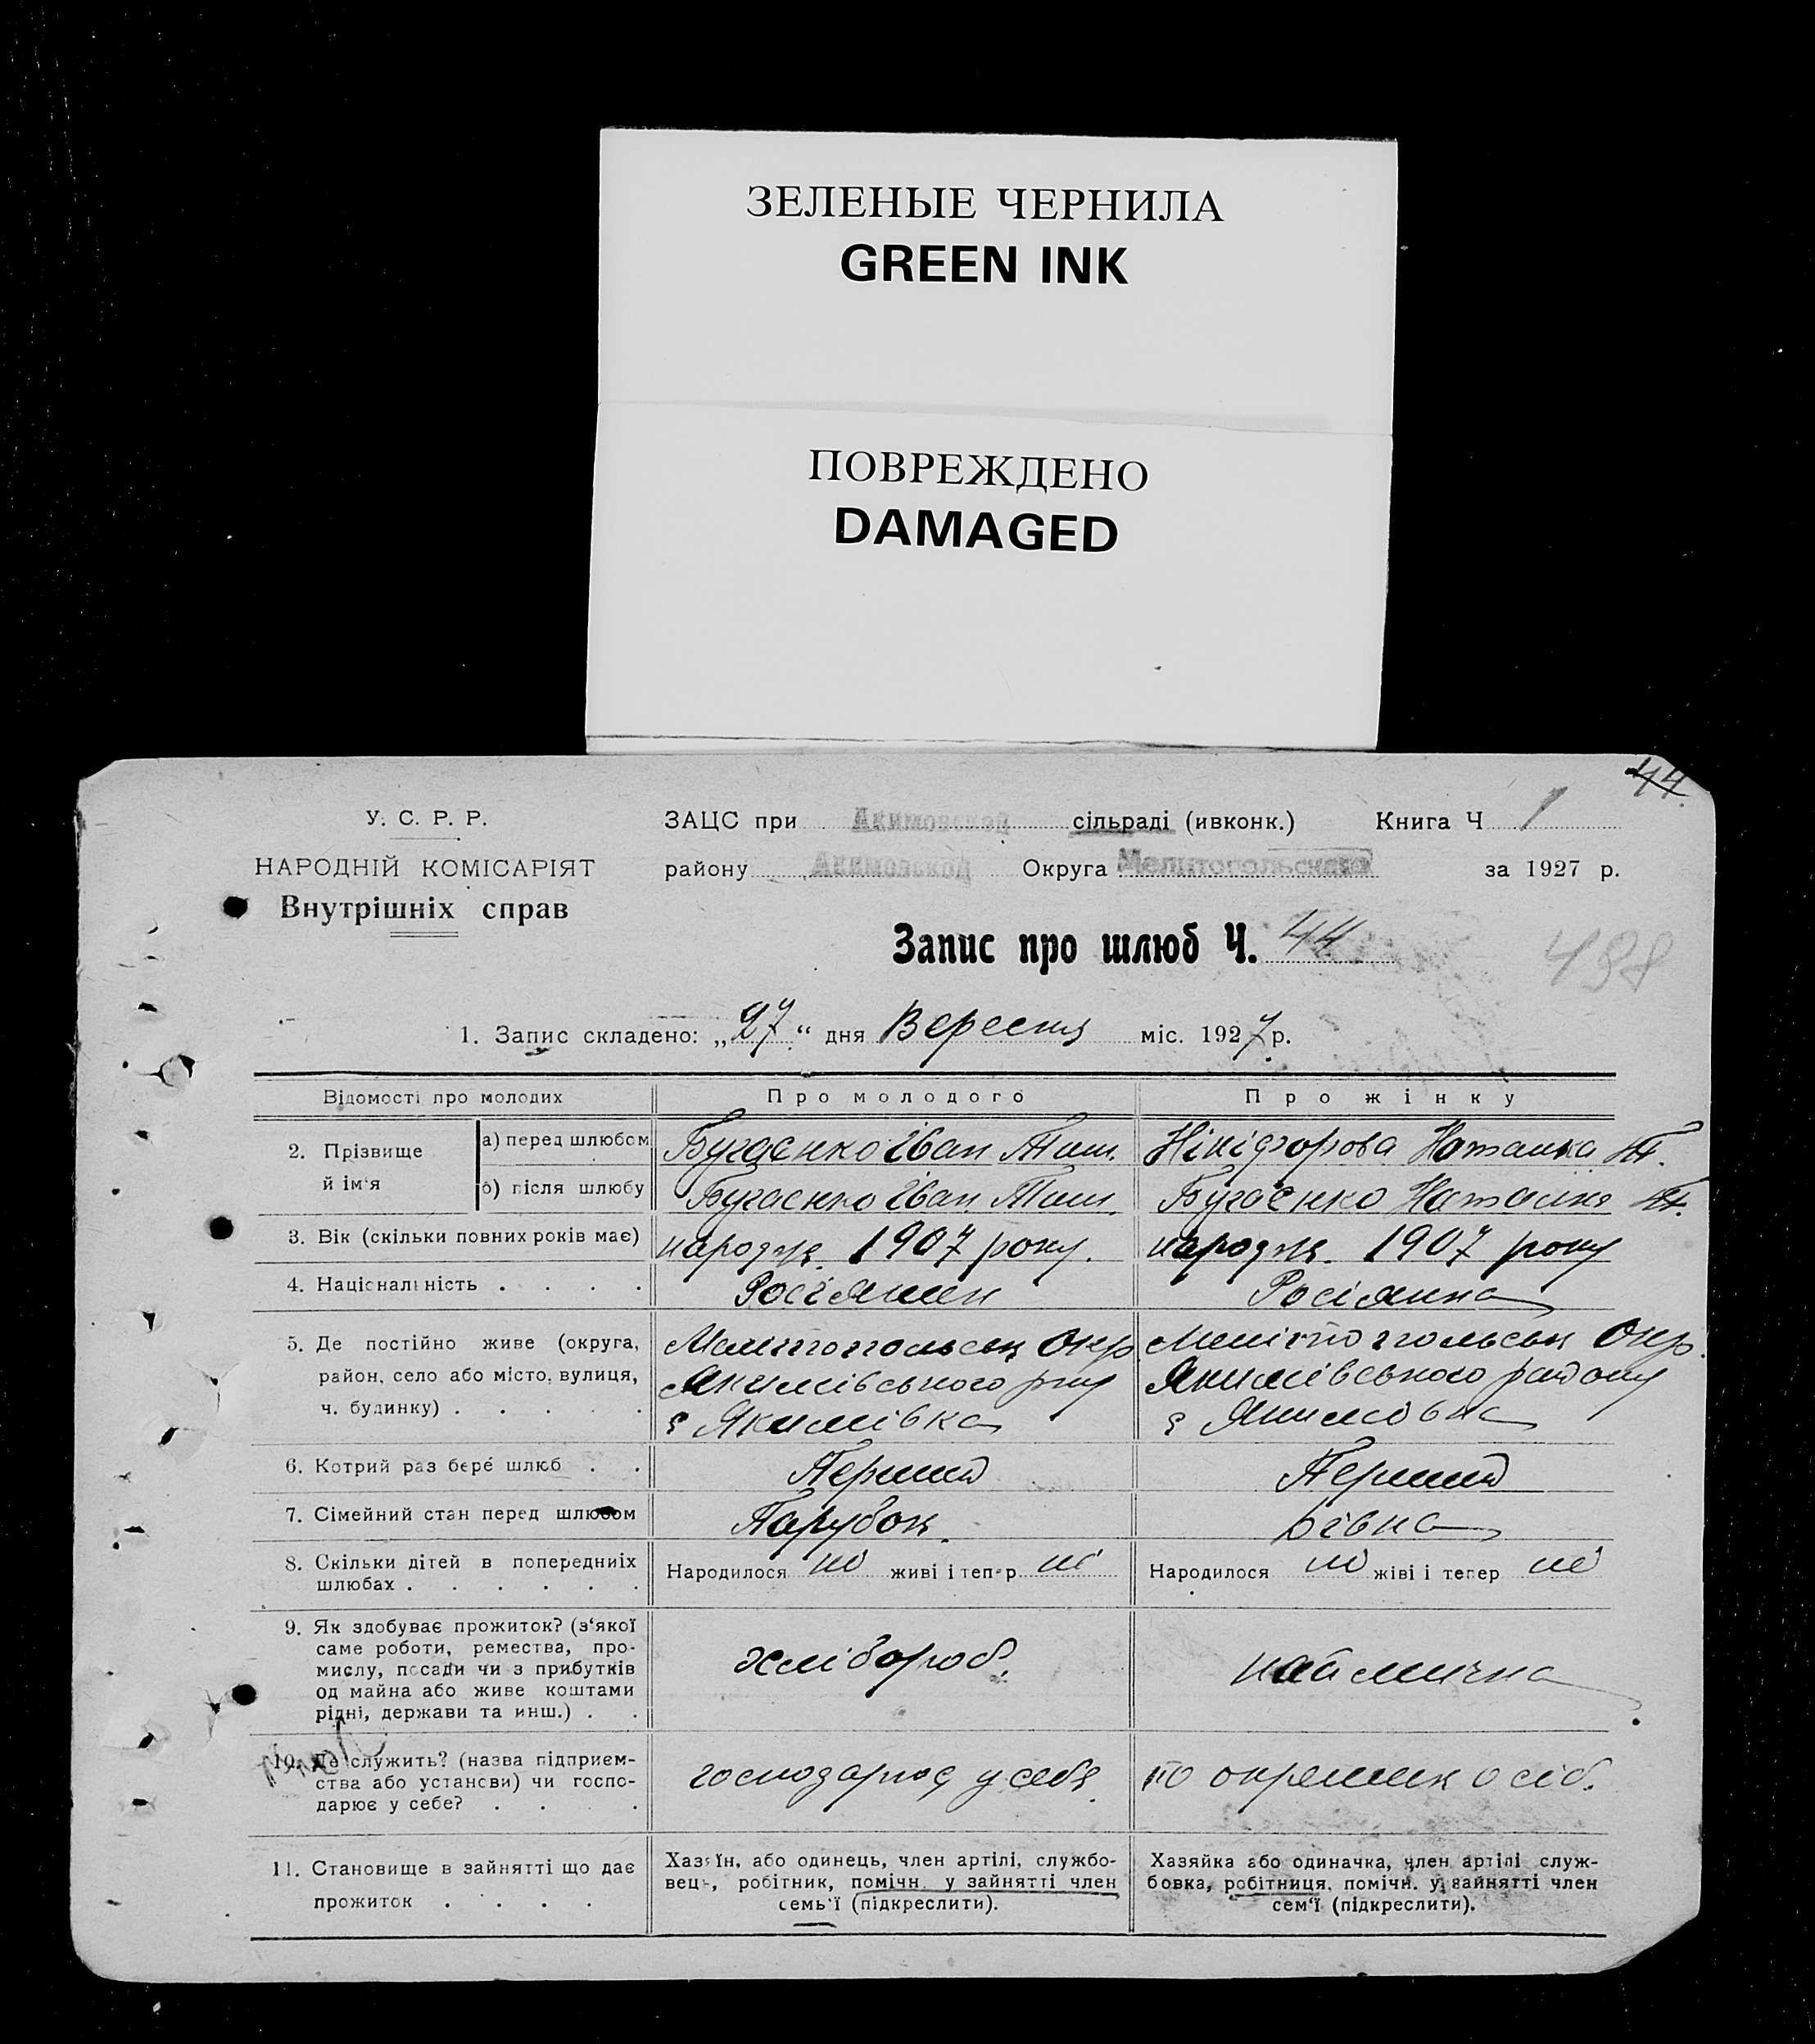 ЗЕЛЕНЫЕ ЧЕРНИЛА
GREEN INK
ПОВРЕЖДЕНО
DAMAGED
44
У. С. Р. Р.
НАРОДНІЙ КОМІСАРІЯТ
Внутрішніх справ
ЗАЦС при Акимовской сільраді (ивконк.) Книга Ч 1
району Акимовской Округа Мелитопольского за 1927 р.
Запис про шлюб Ч. 44
498
1. Запис складено: „27“ дня Вересня міс. 1927 р.
Відомості про молодих Про молодого Про жінку
2. Прізвище й ім‘я
а) перед шлюбом Бугаєнко Іван Тим. Нікіфорова Наталка
б) після шлюбу Бугаєнко Іван Тим. Бугаєнко Наталия
3. Вік (скільки повних років має) народж. 1907 року. народж. 1907 року
4. Національність . . . . Росіянин Росіянка
5. Де постійно живе (округа, Мелітопольськ Окр Мелітопольськ Окр.
район, село або місто, вулиця, Якимівського р-ну Якимівського району
ч. будинку) . . . . . с Якимівка с Якимовка
6. Котрий раз бере шлюб . . Перший Перший
7. Сімейний стан перед шлюбом Парубок. Дівка
8. Скільки дітей в попередніх
шлюбах . . . . . . Народилося ні живі і тепер ні Народилося ні жіві і тепер ні
9. Як здобуває прожиток? (з‘якої
саме роботи, ремества, про-
мислу, посади чи з прибутків
од майна або живе коштами
рідні, держави та инш.) . .
хлібороб.
наймичка
10. Де служить? (назва підприєм-
ства або установи) чи госпо-
дарює у себе? . . . .
господарює у себе.
по окремих осіб.
11. Становище в зайнятті що дає
прожиток . . . .
Хазяїн, або одинець, член артілі, службо-
вець, робітник, помічн. у зайнятті член
семь‘ї (підкреслити).
Хазяйка або одиначка, член артілі служ-
бовка, робітниця, помічн. у зайнятті член
сем‘ї (підкреслити).